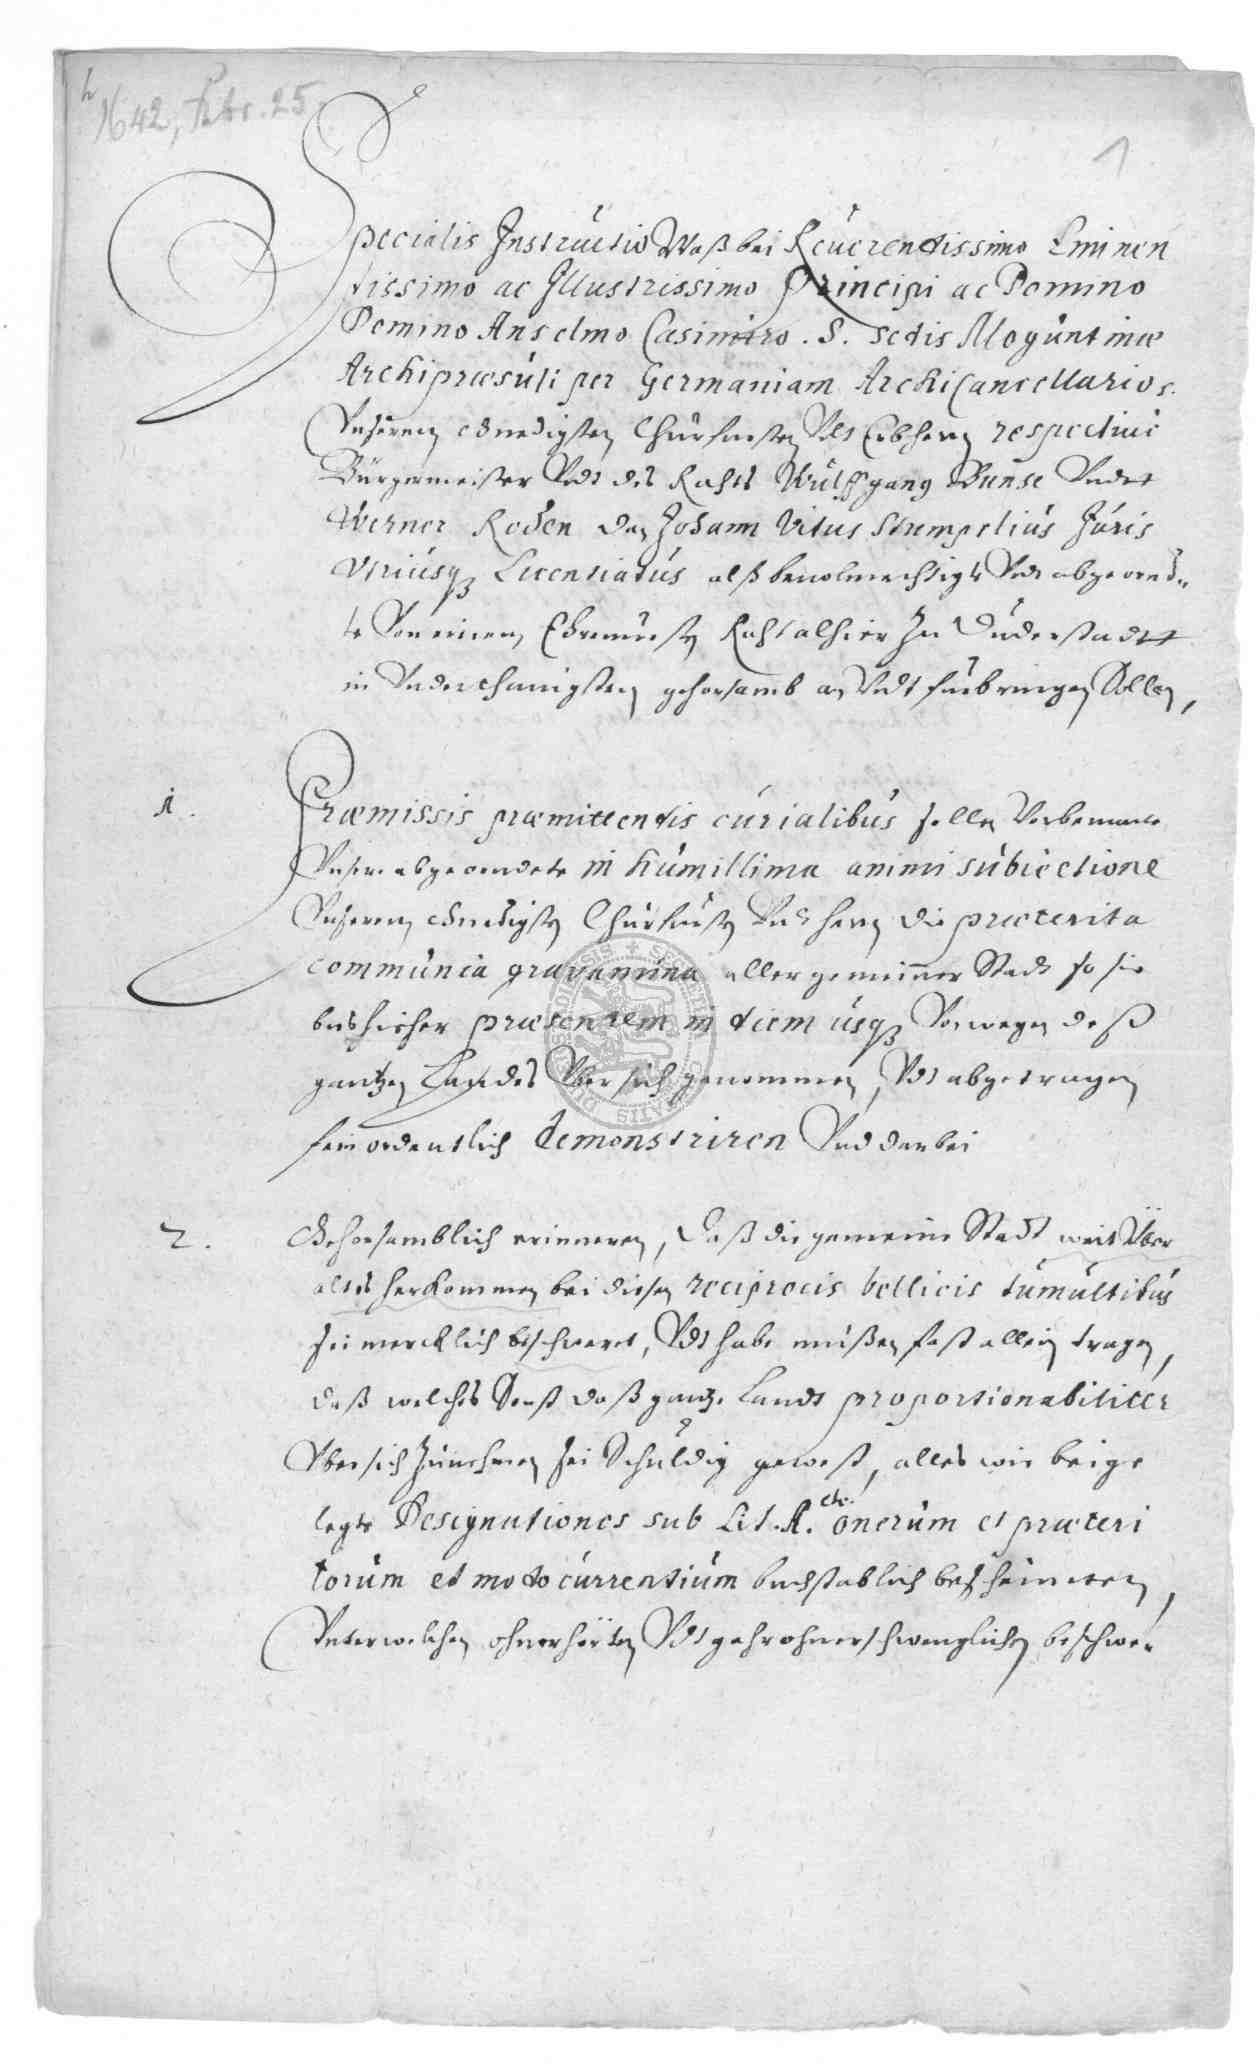 1642, Febr. 25
1
Specialis Instructio Waß bei Reuerendissimo Eminen
tissimo ac Illustrissimo Principi ac Domino
Domino Anselmo Casimiro. S. sedis Moguntinæ
Archipræsuli per Germaniam ArchiCancellario
Unserem Gnedigsten Churfursten Vndt Erbherrn respectiue
Bürgermeister Vndt des Rahts Wulffgang Bunse Vndt
Werner Roden dan Johann Vitus Stumpelius Juris
Vtriusq Licentiatus alß beuolmechtigte Vndt abgeord=
te Von einem Ehrnuesten Raht alhier Zu Duderstadt
in Vnderthenigsten gehorsamb an Vndt fürbringen Sollen,
1.
Præmissis præmittendis curialibus sollen Vorbenante
Vnsere abgeordnete in humillima animi subiectione
Vnserem Gnedigsten Churfursten Vndt herrn die præterita
communia gravamina aller gemeiner Stadt so sie
bishieher præsentem in diem usq Von wegen deß
gantzen Landes Vber sich genommen, Vndt abgetragen
fein ordentlich demonstriren Vnd darbei
2.
Gehorsamblich erinneren, Daß die gemeine Stadt weit Über
altes herkommen bei diesen reciprocis bellicis tumultibus
sei mercklich beschweret, Vndt habe müßen fast allein tragen,
daß welches Sonst daß gantze Landt proportionabiliter
Vber sich Zunehmen sei Schuldig gewest, alles wie beige
legte Designationes sub Lit. A. etc. onerum et præteri
torum et modo currentium buchstablich bescheinen,
Vnter welchen ohnerhörten Vndt gahr ohnerschwenglichen beschwer
SIGILLUM CIVITATIS